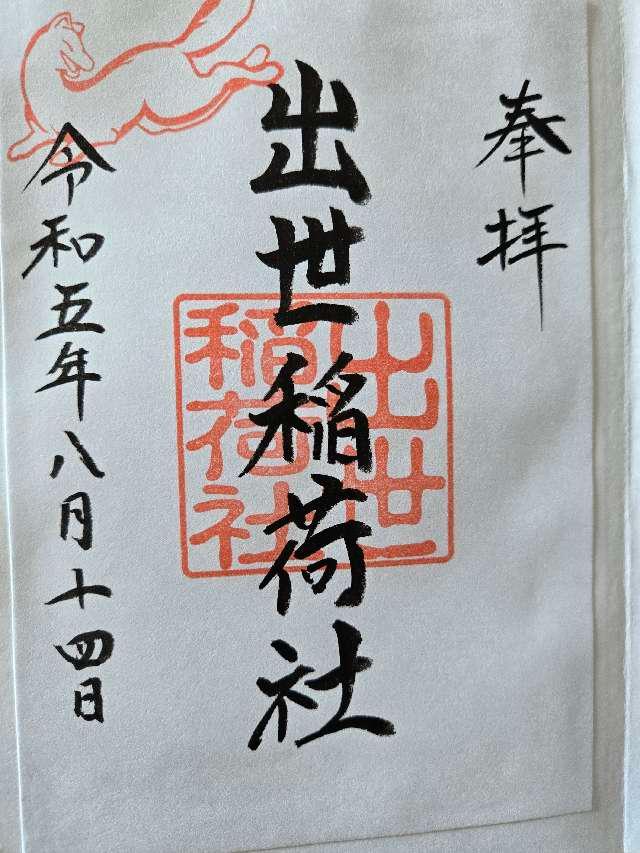 奉拝
出世稲荷社
出世
稲荷社
令和五年八月十四日